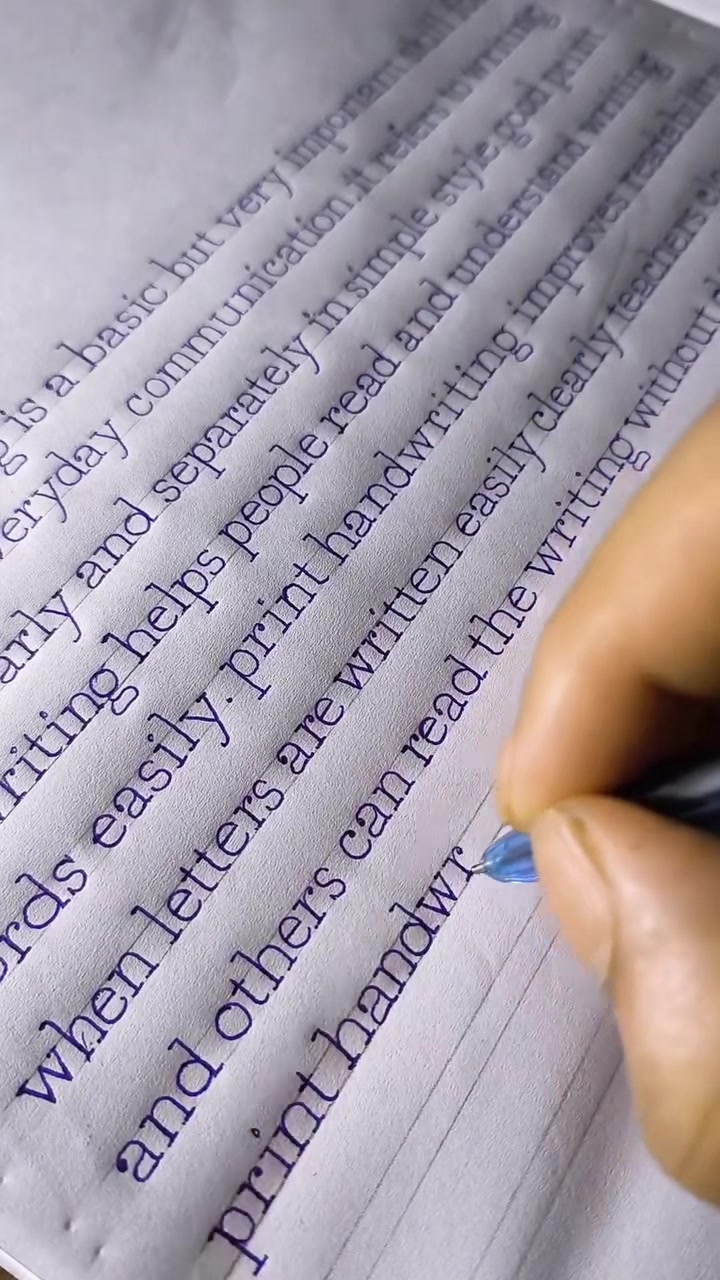 g is a basic but very important
everyday communication. it refers to writing
and separately in simple style. good print
helps people read and understand writing
easily. print handwriting improves readability
when letters are written easily clearly teachers
and others can read the writing without
print handwr